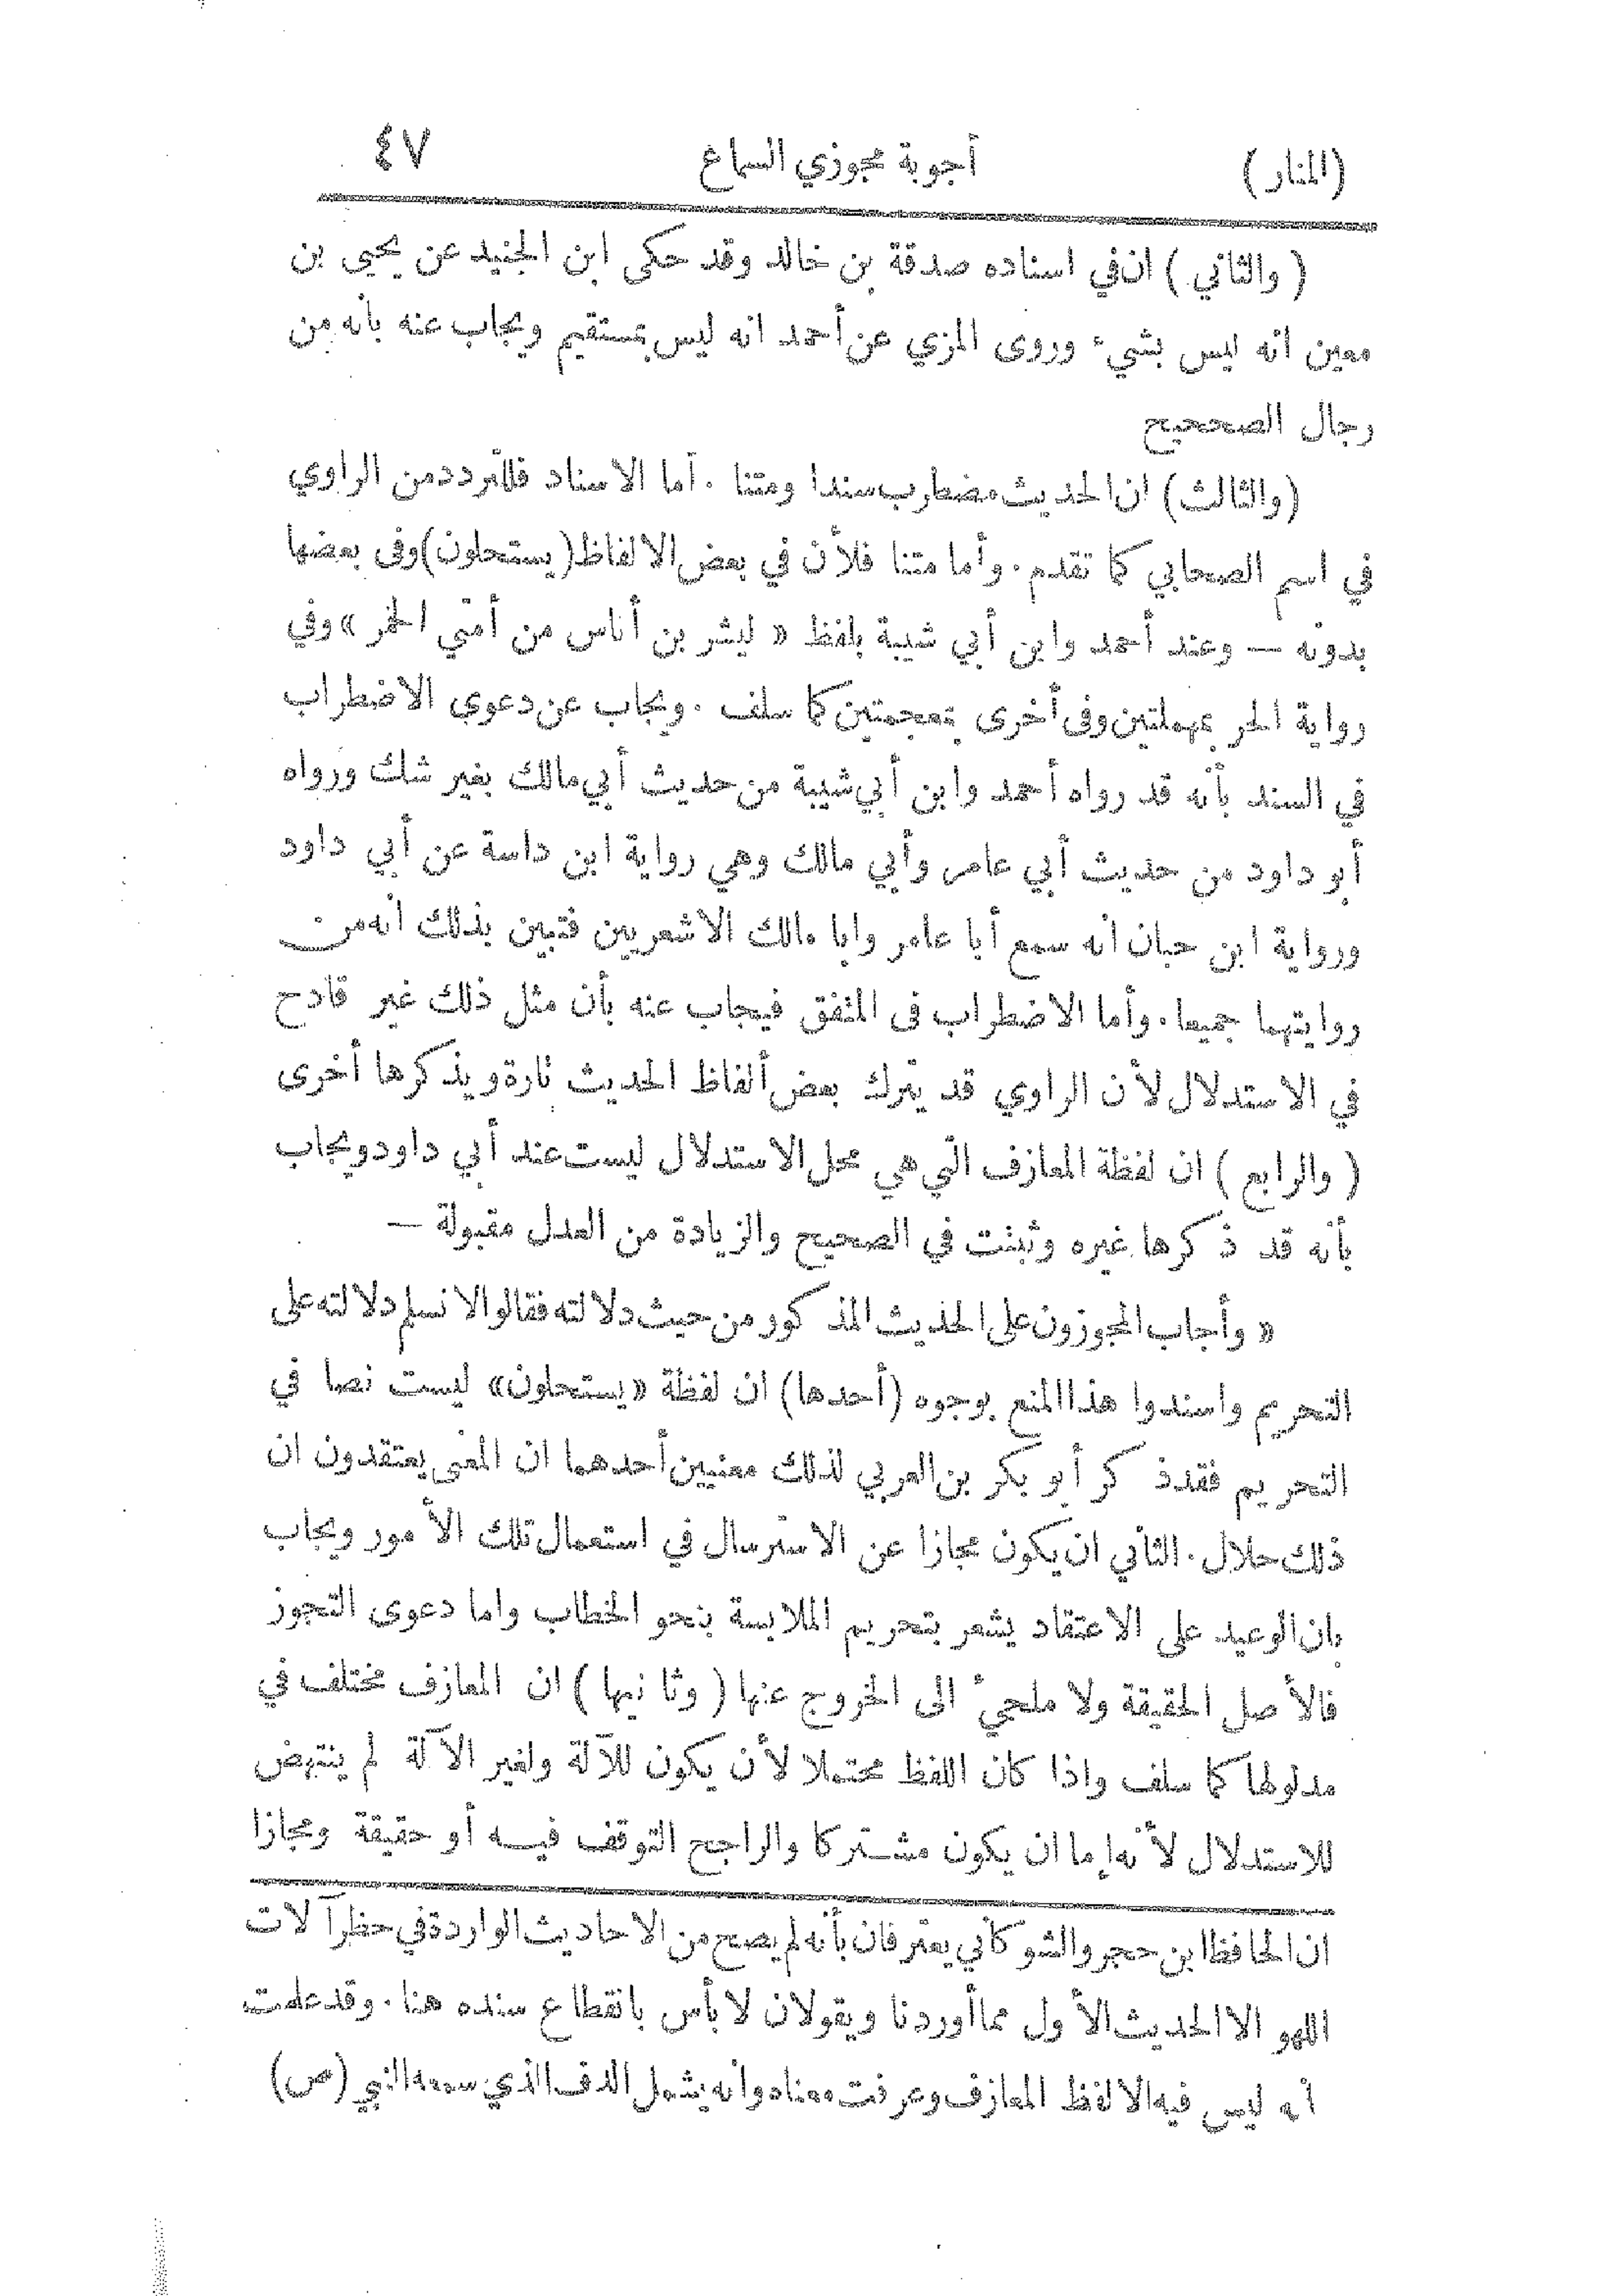 (المنار) أجوبة مجوزي السماع ٤٧
( والثاني ) ان في اسناده صدقة بن خالد وقد حكى ابن الجنيد عن يحيى بن
معين انه ليس بشيء وروى المزي عن أحمد انه ليس بمستقيم ويجاب عنه بأنه من
رجال الصحيح
(والثالث) ان الحديث مضطرب سندا ومتنا . أما الاسناد فللتردد من الراوي
في اسم الصحابي كما تقدم . وأما متنا فلأن في بعض الالفاظ (يستحلون) وفى بعضها
بدونه — وعند أحمد وابن أبي شيبة بلفظ « ليشربن أناس من أمتي الخمر » وفي
رواية الحر بمهملتين وفى أخرى بمعجمتين كما سلف . ويجاب عن دعوى الاضطراب
في السند بأنه قد رواه أحمد وابن أبي شيبة من حديث أبي مالك بغير شك ورواه
أبو داود من حديث أبي عامر وأبي مالك وهي رواية ابن داسة عن أبي داود
ورواية ابن حبان أنه سمع أبا عامر وابا مالك الاشعريين فتبين بذلك أنه من
روايتهما جميعا . وأما الاضطراب فى المتفق فيجاب عنه بأن مثل ذلك غير قادح
في الاستدلال لأن الراوي قد يترك بعض ألفاظ الحديث تارة ويذكرها أخرى
( والرابع ) ان لفظة المعازف التي هي محل الاستدلال ليست عند أبي داود ويجاب
بأنه قد ذكرها غيره وثبتت في الصحيح والزيادة من العدل مقبولة —
« وأجاب المجوزون على الحديث المذكور من حيث دلالته فقالوا لا نسلم دلالته على
التحريم واسندوا هذا المنع بوجوه (أحدها) ان لفظة «يستحلون» ليست نصا في
التحريم فقد ذكر أبو بكر بن العربي لذلك معنيين أحدهما ان المعنى يعتقدون ان
ذلك حلال . الثاني ان يكون مجازا عن الاسترسال في استعمال تلك الأمور ويجاب
بان الوعيد على الاعتقاد يشعر بتحريم الملابسة بنحو الخطاب واما دعوى التجوز
فالأصل الحقيقة ولا ملجئ الى الخروج عنها ( وثانيها ) ان المعازف مختلف في
مدلولها كما سلف واذا كان اللفظ محتملا لأن يكون للآلة ولغير الآلة لم ينتهض
للاستدلال لأنه إما ان يكون مشتركا والراجح التوقف فيه أو حقيقة ومجازا
ان الحافظ ابن حجر والشوكاني يعترفان بأنه لم يصح من الاحاديث الواردة في حظر آلات
اللهو الا الحديث الأول مما أوردنا ويقولان لا بأس بانقطاع سنده هنا . وقد علمت
أنه ليس فيه الا لفظ المعازف وعرفت معناه وانه يشمل الدف الذي سمعه النبي (ص)